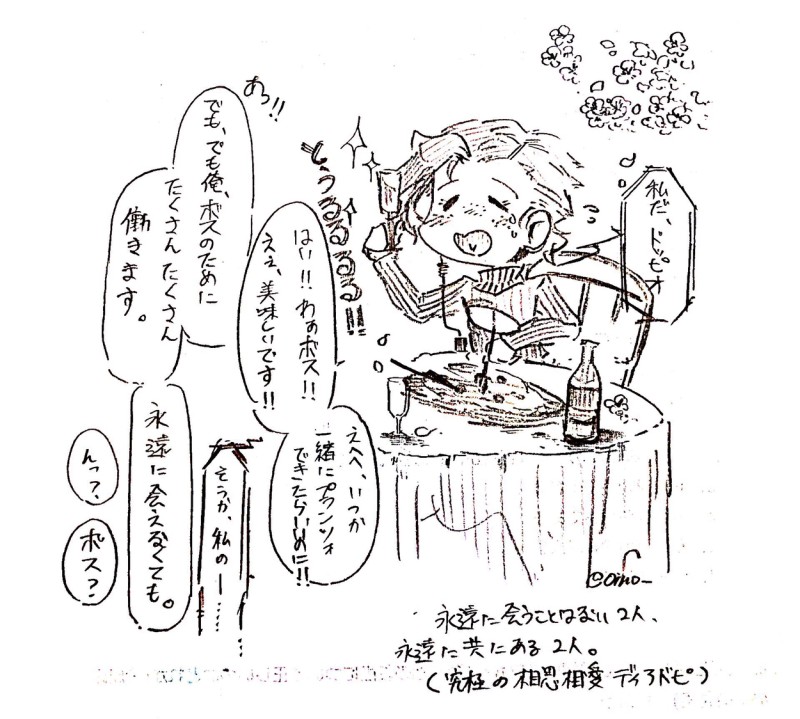 私だ、ドッピオ
とぅるるるる!!
はい!!わぁボス!!
ええ、美味しいです!!
えへへ、いつか
一緒にプランツォ
できたらいいのに!!
あっ!!
でも、でも俺、ボスのために
たくさんたくさん
働きます。
永遠に会えなくても。
そうか、私の――……
んっ?
ボス?
@omo_
永遠に会うことはない2人、
永遠に共にある2人。
(究極の相思相愛ディアドピ)